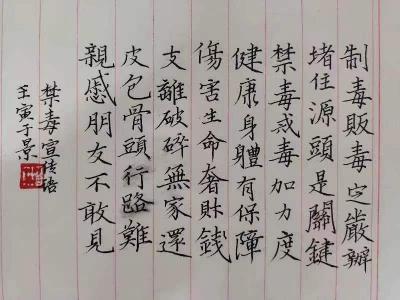 制毒販毒必嚴辦
堵住源頭是關鍵
禁毒戒毒加力度
健康身體有保障
傷害生命奢財錢
支離破碎無家還
皮包骨頭行路難
親慼朋友不敢見
禁毒宣传语
壬寅于景